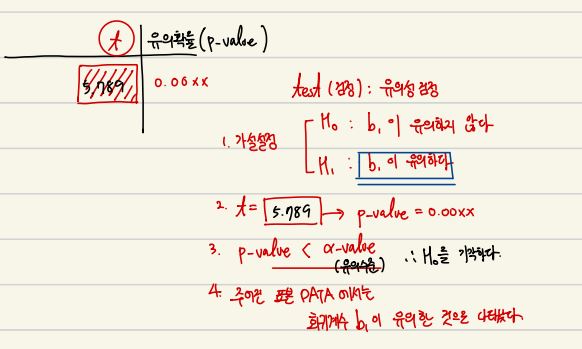 t 유의확률(p-value)
5.789 0.00xx
test (검정) : 유의성 검정
1. 가설설정
H₀ : b₁이 유의하지 않다
H₁ : b₁이 유의하다
2. t = 5.789 → p-value = 0.00xx
3. p-value < α-value
(유의수준)
∴ H₀을 기각하다.
4. 주어진 표본 DATA에서는
회귀계수 b₁이 유의한 것으로 나타났다.